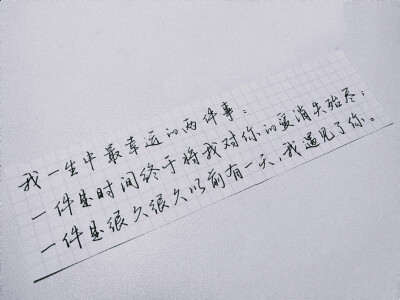 我一生中最幸运的两件事：
一件是时间终于将我对你的爱消失殆尽；
一件是很久很久以前有一天，我遇见了你。